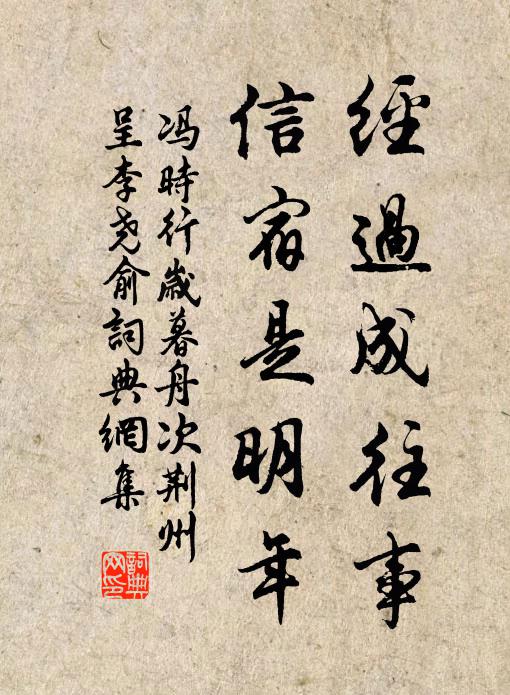 經過成往事
信宿是明年
冯時行歲暮舟次荆州
呈李尧俞詞典網集
詞典
网印